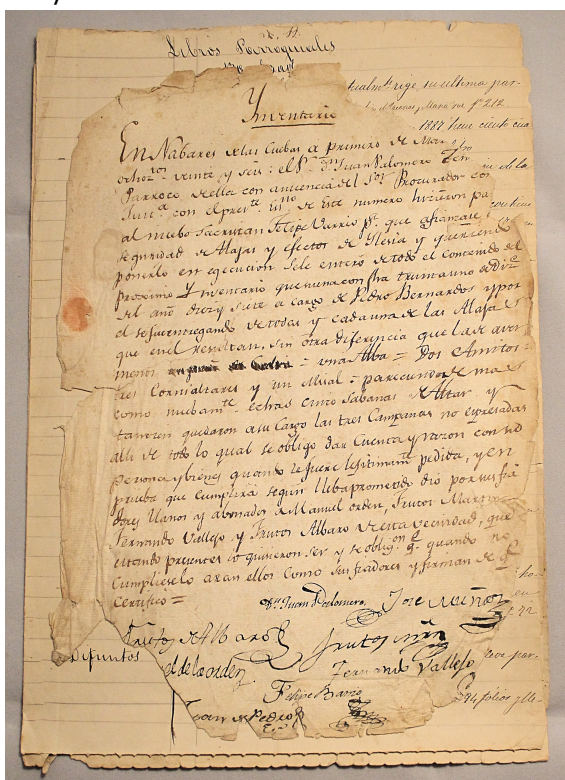 Libros Parroquiales
tualmte. rige, su ultima par-
Ynventario
fo 212
1887 tiene ciento cua
En Nabares de las Cuebas a primero de Mar
ochozos veinte y seis: el Sr. Dn Juan Palomero
Parroco de ella con asistencia del Sor Procurador
de la
al nuebo sacristan Felipe Barrio pa. que afianzase
seguridad de Alajas y efectos de Yglesia y queriendo
ponerlo en egecucion se le enteró de todo el contenido del
proximo Ynventario que suena con fha treinta uno de Dize
del año diez y siete a cargo de Pedro Bernardos y por
el se fue entregando de todas y cada una de las Alajas
que en el resultan, sin otra diferencia que las de aver
menos una Alba = Dos Amitos =
tres Cornialtares y un Misal = pareciendo de mas
como nuebamte echas cinco Sabanas de Altar y
tambien quedaron a su Cargo las tres Campanas no espresadas
alli de todo lo qual se obligo dar Cuenta y razon con su
persona y bienes quando le fuere lejitimamte pedida, y en
prueba que cumplira segun lleba prometido dio por sus fia
dores llanos y abonados a Manuel orden, Frutos Martin
Fernando Vallejo y Frutos Albaro de esta vecindad, que
estando presentes lo quisieron ser y se obligon q. quando no
Cumpliese lo aran ellos como sus fiadores y firman de q.
Certifico =
Dn. Juan Palomero
Jose Muñoz
Frutos de Albaro
Frutos
Difuntos
el de la orden
Fernando Vallejo
Felipe Barrio
Juan de Pedro
94 folios y